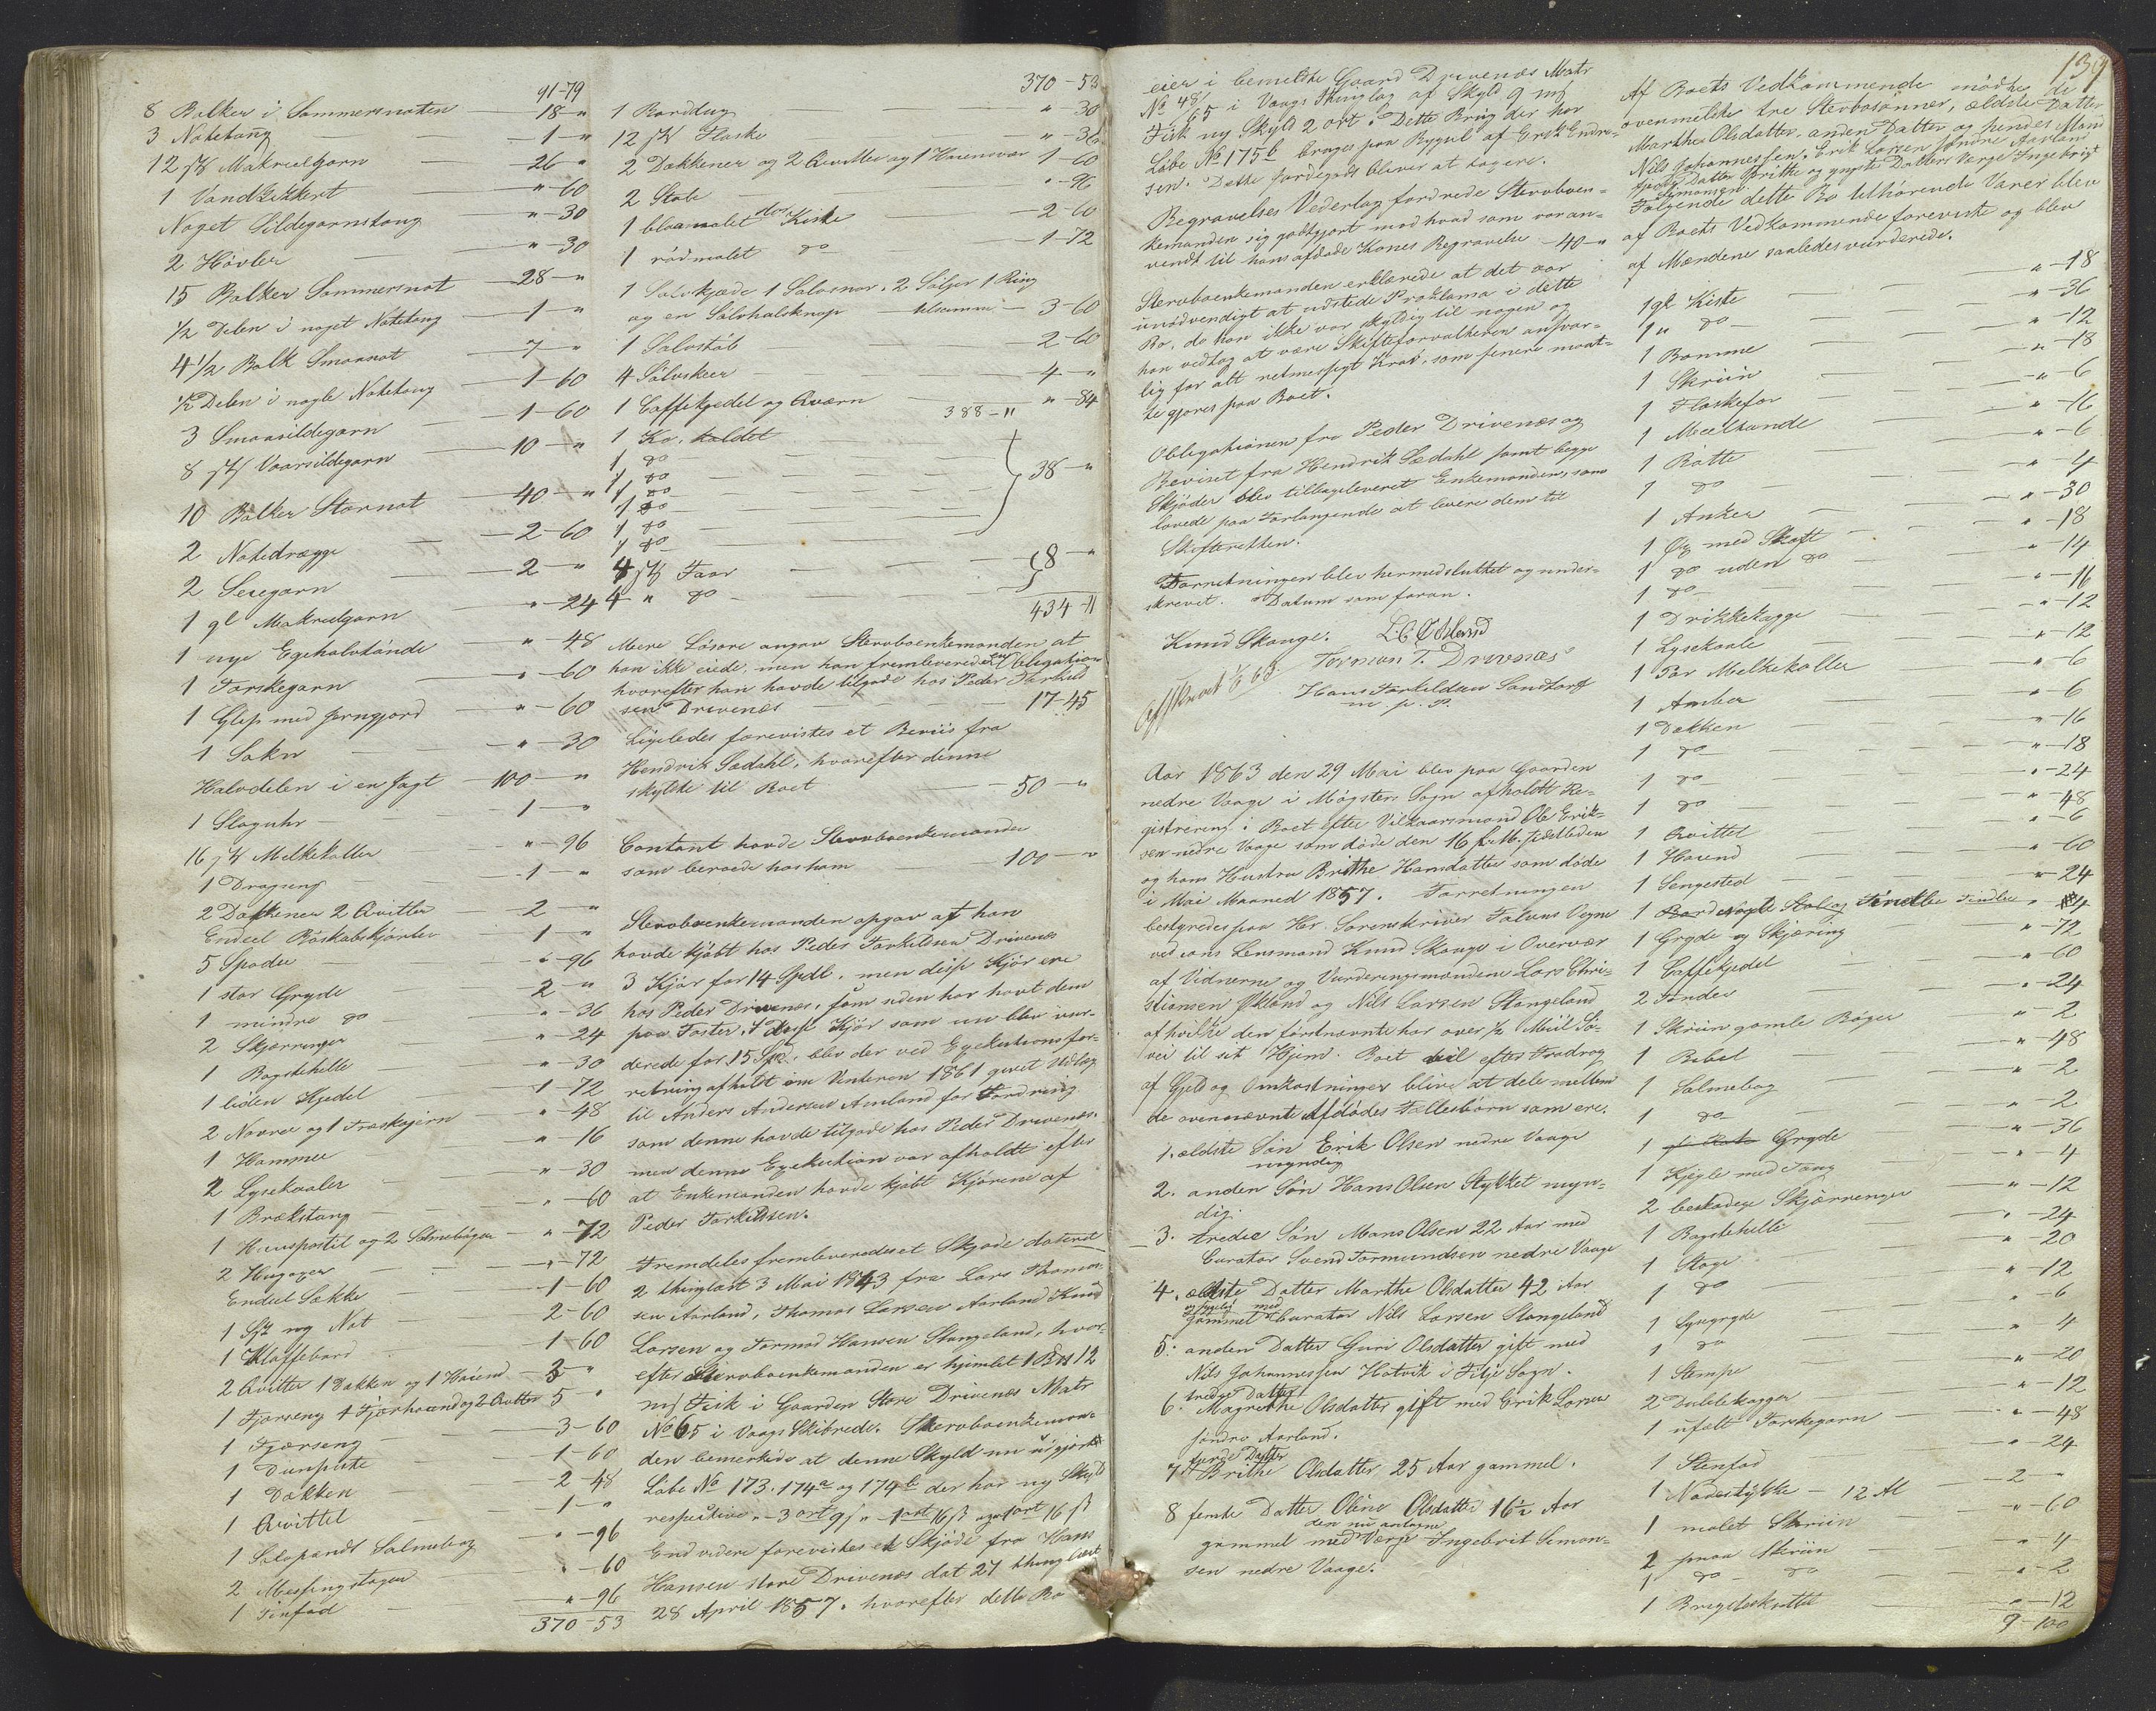 91-79
8 Balker i Sommernoten 18-"
3 Notetoug 1-"
12 stk Makrelgarn 26-"
1 Vandkikkert "-60
Noget Sildegarnstoug "-30
2 Høvler "-30
15 Balker Sommernot 28-"
1/2 Delen i noget Notetoug 1-"
4 1/2 Balk Smaanot 7-"
1/2 Delen i nogle Notetoug 1-60
3 Smaasildegarn 1-60
8 stk Vaarsildegarn 10-"
10 Balker Stornot 40-"
2 Notedrægge 2-60
2 Seiegarn 2-"
1 gl Makrelgarn "-24
1 nye Egehalvtønde "-48
1 Torskegarn "-60
1 Glip med Jerngjord "-60
1 Sakn "-30
Halvdelen i en Jagt 100-"
1 Slaguhr 1-"
16 stk Melkekoller "-96
1 Dragseng 1-"
2 Dækkener 2 Qvitler 2-"
Endeel Røskabskjørler 1-"
5 Spader "-96
1 stor Gryde 2-"
1 mindre do "-36
2 Skjæringer "-24
1 Bagstehelle "-30
1 liden Kjedel 1-72
2 Navrer og 1 Træskojern "-48
1 Hammer "-16
2 Lysekoaler "-30
1 Brækstang "-60
1 Huuspostil og 2 Salmebøger "-72
2 Hugøxer "-72
Endeel Sække 1-60
1 Not 2-60
1 Klaffebord 1-60
2 Qvitler 1 Dækken og 1 Høiend 3 "
1 Fjærseng 1 Fjærhoved og 2 Qvitler 5 "
1 Fjærseng 3-60
1 Dunpute 1-60
1 Dækken 2-48
1 Qvittel 1-"
1 Sølvspændt Salmebog "-96
2 Messingstager "-60
1 Tinfad "-96
370-53
370-53
1 Borddug "-30
12 stk Flaske "-36
2 Dækkener og 2 Qvitler og 1 Huensvær 1-60
2 Stole "-96
1 blaamalet Kiste 2-60
1 rødmalet do 1-72
1 Sølvkjæde 1 Sølvsnor, 2 Søljer 1 Ring
og en Sølvhalsknap tilsammen 3-60
1 Sølvstøb 2-60
4 Sølvskeer 4-"
1 Caffekjedel og Qværn "-84
388-11
1 Ko, kaldet
1 do
1 do
1 do 38-"
1 do
1 do
1 do
4 stk Faar
4 " do 8-"
434-11
Mere Løsøre angav Stervboenkemanden at
han ikke eiede, men han fremleverede en Obligation
hvorefter han havde tilgode hos Peder Torkild
sen Drivenæs 17-45
Ligeledes forevistes et Beviis fra
Hendrik Sædahl, hvorefter denne
skyldte til Boet 50-"
Contant havde Stervboenkemanden
som beroede hos ham 100-"
Stervboenkemanden opgav at han
havde kjøbt hos Peder Torkildsen Drivenæs
3 Kjør for 14 Spdl. men disse Kjør ere
hos Peder Drivenæs, som siden har havt dem
paa Foster. I disse Kjør som nu blev vur-
derede for 15 Spd. blev der ved Exekutionsfor-
retning afholdt om Vinteren 1861 givet Udlæg
til Anders Andersen Amland for Fordring
som denne havde tilgode hos Peder Drivenæs.
men denne Exekution var afholdt efter
at Enkemanden havde kjøbt Kjørene af
Peder Torkildsen.
Fremdeles fremleveredes et Skjøde dateret
2 thinglæst 3 Mai 1843 fra Lars Thoma-
sen Aarland, Thomas Larsen Aarland Knud
Larsen og Tormod Hansen Stangeland, hvor-
efter Stervboenkemanden er hjemlet 1 12
Fisk i Gaarden Store Drivenæs Matr
No 65 i Vaags Skibrede. Stervboenkeman-
den bemerkede at denne Skyld nu udgjorde
Løbe No 173. 174a og 174b der har ny Skyld
respective "-3 ort 9 "-1 ort 16 og 1 ort 16
End videre forevistes et Skjøde fra Hans
Hansen store Drivenæs dat 27 thinglæst
28 April 1857. hvorefter dette Bo
eier i bemeldte Gaard Drivenæs Matr
No 48/65 i Vaags Thinglag af Skyld 9
Fisk ny Skyld 2 ort. Dette Brug der har
Løbe No 175b bruges paa Bygsel af Erik Endre-
sen. Dette Jordegods bliver at taxere.
Begravelses Vederlag fordrede Stervboen-
kemanden sig godtgjort med hvad som var an-
vendt til hans afdøde Kones Begravelse 40-"
Stervboenkemanden erklærede at det var
unødvendigt at udstede Proklama i dette
Bo, da han ikke var skyldig til nogen og
han vedtog at være Skifteforvalteren ansvar-
lig for alt retmessigt Krav, som senere maat-
te gjøres paa Boet.
Obligationen fra Peder Drivenæs og
Beviset fra Hendrik Sædahl samt begge
Skjøder blev tilbageleveret Enkemanden, som
lovede paa Forlangende at levere dem til
Skifteretten.
Forretningen blev hermed sluttet og under-
skrevet. Datum som foran.
Knud Skauge. L. C. Økland
Tormon T. Drivnæs
Hans Torkildsen Sandtorf
m. p. P.
Aar 1863 den 29 Mai blev paa Gaarden
nedre Vaage i Møgster Sogn afholdt Re-
gistrering i Boet efter Vilkaarsmand Ole Erik-
sen nedre Vaage som døde den 16 f. M. sidstleden
og hans Hustru Brithe Hansdatter som døde
i Mai Maaned 1857. Forretningen
bestyredes paa Hr. Sorenskriver Falsens Vegne
ved cons Lensmand Knud Skauge i Overvær
af Vidnerne og Vurderingsmændene Lars Chri-
stiansen Økland og Nils Larsen Stangeland
af hvilke den førstnævnte har over 1/2 Miil Sø-
vei til sit Hjem. Boet vil efter Fradrag
af Gjeld og Omkostninger blive at dele mellem
de ovennævnte Afdødes Fællesbørn som ere.
1. ældste Søn Erik Olsen nedre Vaage
myndig
2. anden Søn Hans Olsen Stykket myn-
dig.
3. tredie Søn Mons Olsen 22 Aar med
Curator Svend Tormundsen nedre Vaage
4. ældste Datter Marthe Olsdatter 42 Aar
gammel med Curator Nils Larsen Stangeland
5. anden Datter Guri Olsdatter gift med
Nils Johannessen Hatvik i Fitje Sogn.
tredje Datter
6. Magrethe Olsdatter gift med Erik Larsen
søndre Aarland.
fjerde Datter
7. Brithe Olsdatter 25 Aar gammel.
8 femte Datter Oline Olsdatter 16 1/2 Aar
den nu antagne
gammel med Værge Ingebrit Simon-
sen nedre Vaage.
139
Af Boets Vedkommende mødte de
ovenmeldte tre Stervbosønner, ældste Datter
Marthe Olsdatter, anden Datter og hendes Mand
Nils Johannessen, Erik Larsen søndre Aarland
fjerde Datter Brithe og yngste Datters Værge Ingebrigt
Simonsen.
Følgende dette Bo tilhørende Varer blev
af Boets Vedkommende foreviste og blev
af Mændene saaledes vurderede.
1 gl Kiste "-18
1 " do "-36
1 Bomme "-12
1 Skriin "-18
1 Flaskefor "-6
1 Meeltønde "-16
1 Bøtte "-6
1 do "-4
1 Anker "-30
1 Øx med Skaft "-18
1 do uden do "-14
1 do "-16
1 Drikkekagge "-12
1 Lysekoale "-12
1 Par Melkekoller "-6
1 Amber "-6
1 Dækken "-16
1 do "-18
1 do "-24
1 do "-48
1 Qvittel "-6
1 Høiend "-60
1 Sengested "-24
1 Bord Nogle Stoler Tindbe Tindbe "-4
1 Gryde og Skjæring "-72
1 Caffekjedel "-60
2 Tønder "-24
1 Skriin gamle Bøger "-2
1 Bibel "-48
1 Salmebog "-2
1 do "-2
1 Gryde "-36
1 Kjegle med Toug "-4
2 beskadige Skjæringer "-12
1 Bagstehelle "-24
1 Stage "-20
1 do "-12
1 Lyngryde "-6
1 do "4
1 Stampe "-20
2 Dublekagger "-12
1 ufelt Torskegarn "-48
1 Steenfad "-24
1 Notestykke - 12 Al 2-"
1 malet Skriin "-60
2 smaa Skriin "-4
1 do do "-2
1 Bryggeskottel "-12
9-100